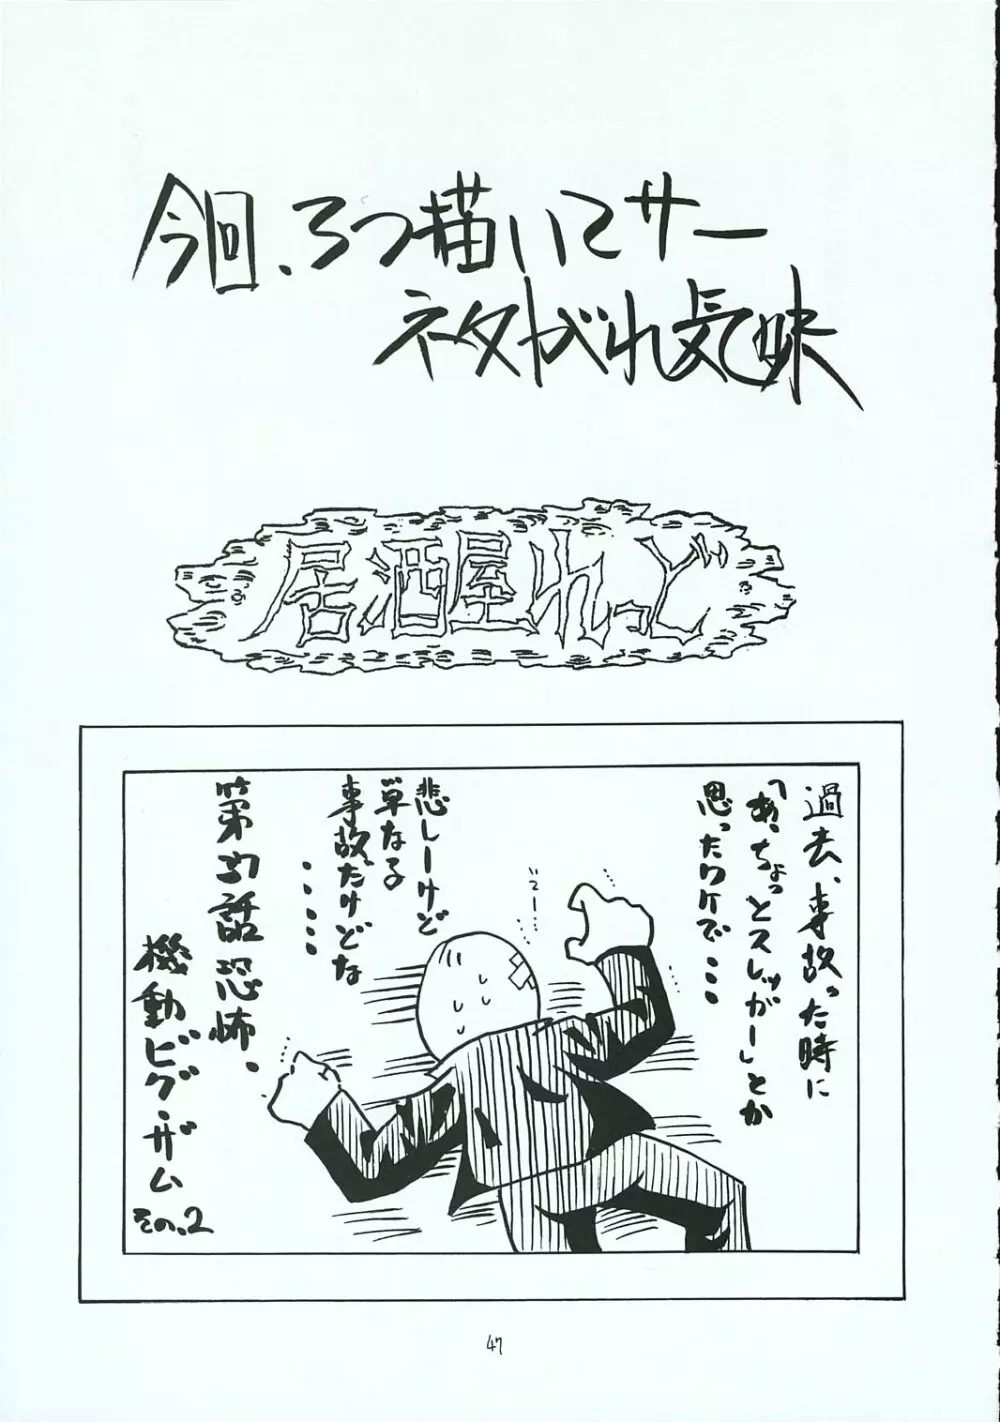 今回、3つ描いてサー
ネタがれ気味
居酒屋れっど
過去、事故った時に
「あ、ちょっとスレッガー」とか
思ったワケで・・・
悲しーけど
単なる
事故だけどな
・・・・
第37話恐怖、
機動ビグ・ザム
その.2
47